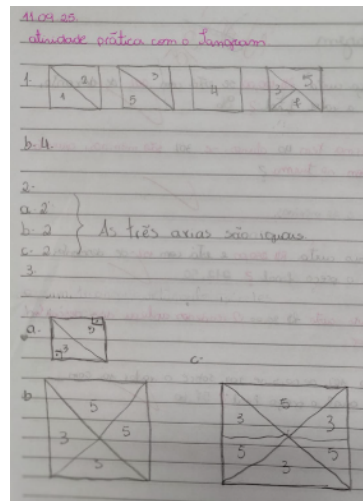 11.09.25
atividade prática com o Tangram
1. 1 2 5 3 4 3 5 4
b. 4.
2.
a. 2
b. 2 As três árias são iguais
c. 2
3.
a. 3 5
c.
b 5 3 5 5
5 3 3 5 3 5